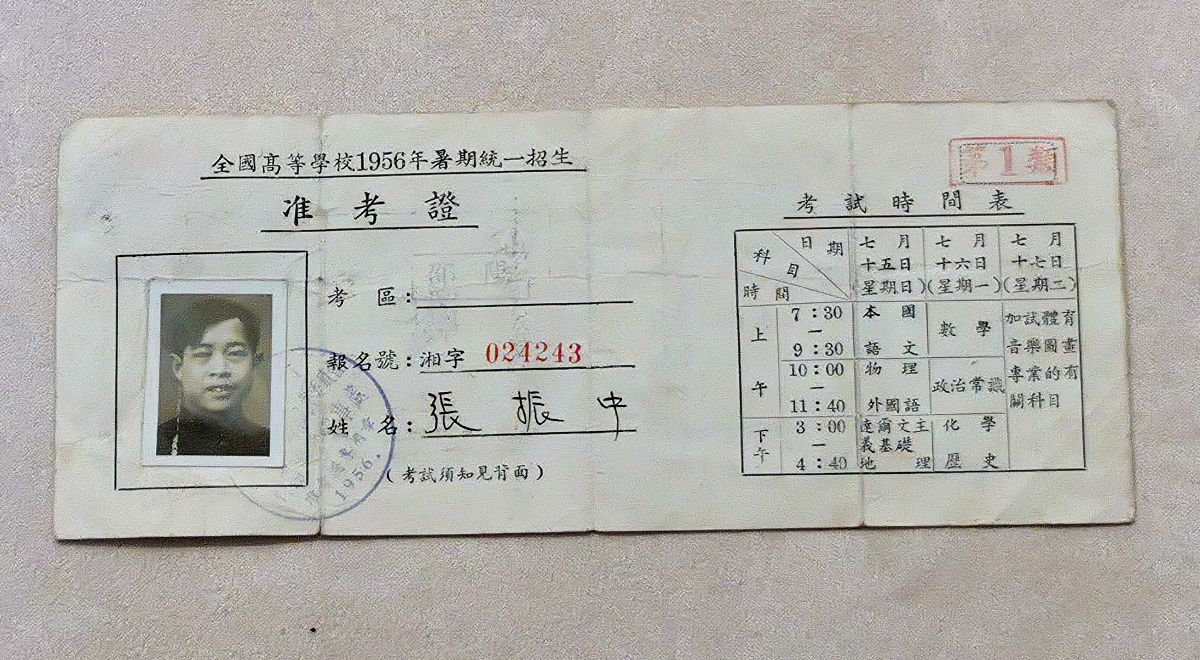 全國高等學校1956年暑期統一招生
准考證
考區：邵陽
報名號：湘字 024243
姓名：張振中
（考試須知見背面）
1956.
第1類
考試時間表
科目 日期 時間
七月十五日（星期日）
七月十六日（星期一）
七月十七日（星期二）
上午
7：30—9：30
本國語文
數學
加試體育音樂圖畫專業的有關科目
10：00—11：40
物理
外國語
政治常識
下午
3：00—4：40
達爾文主義基礎
地理
化學
歷史